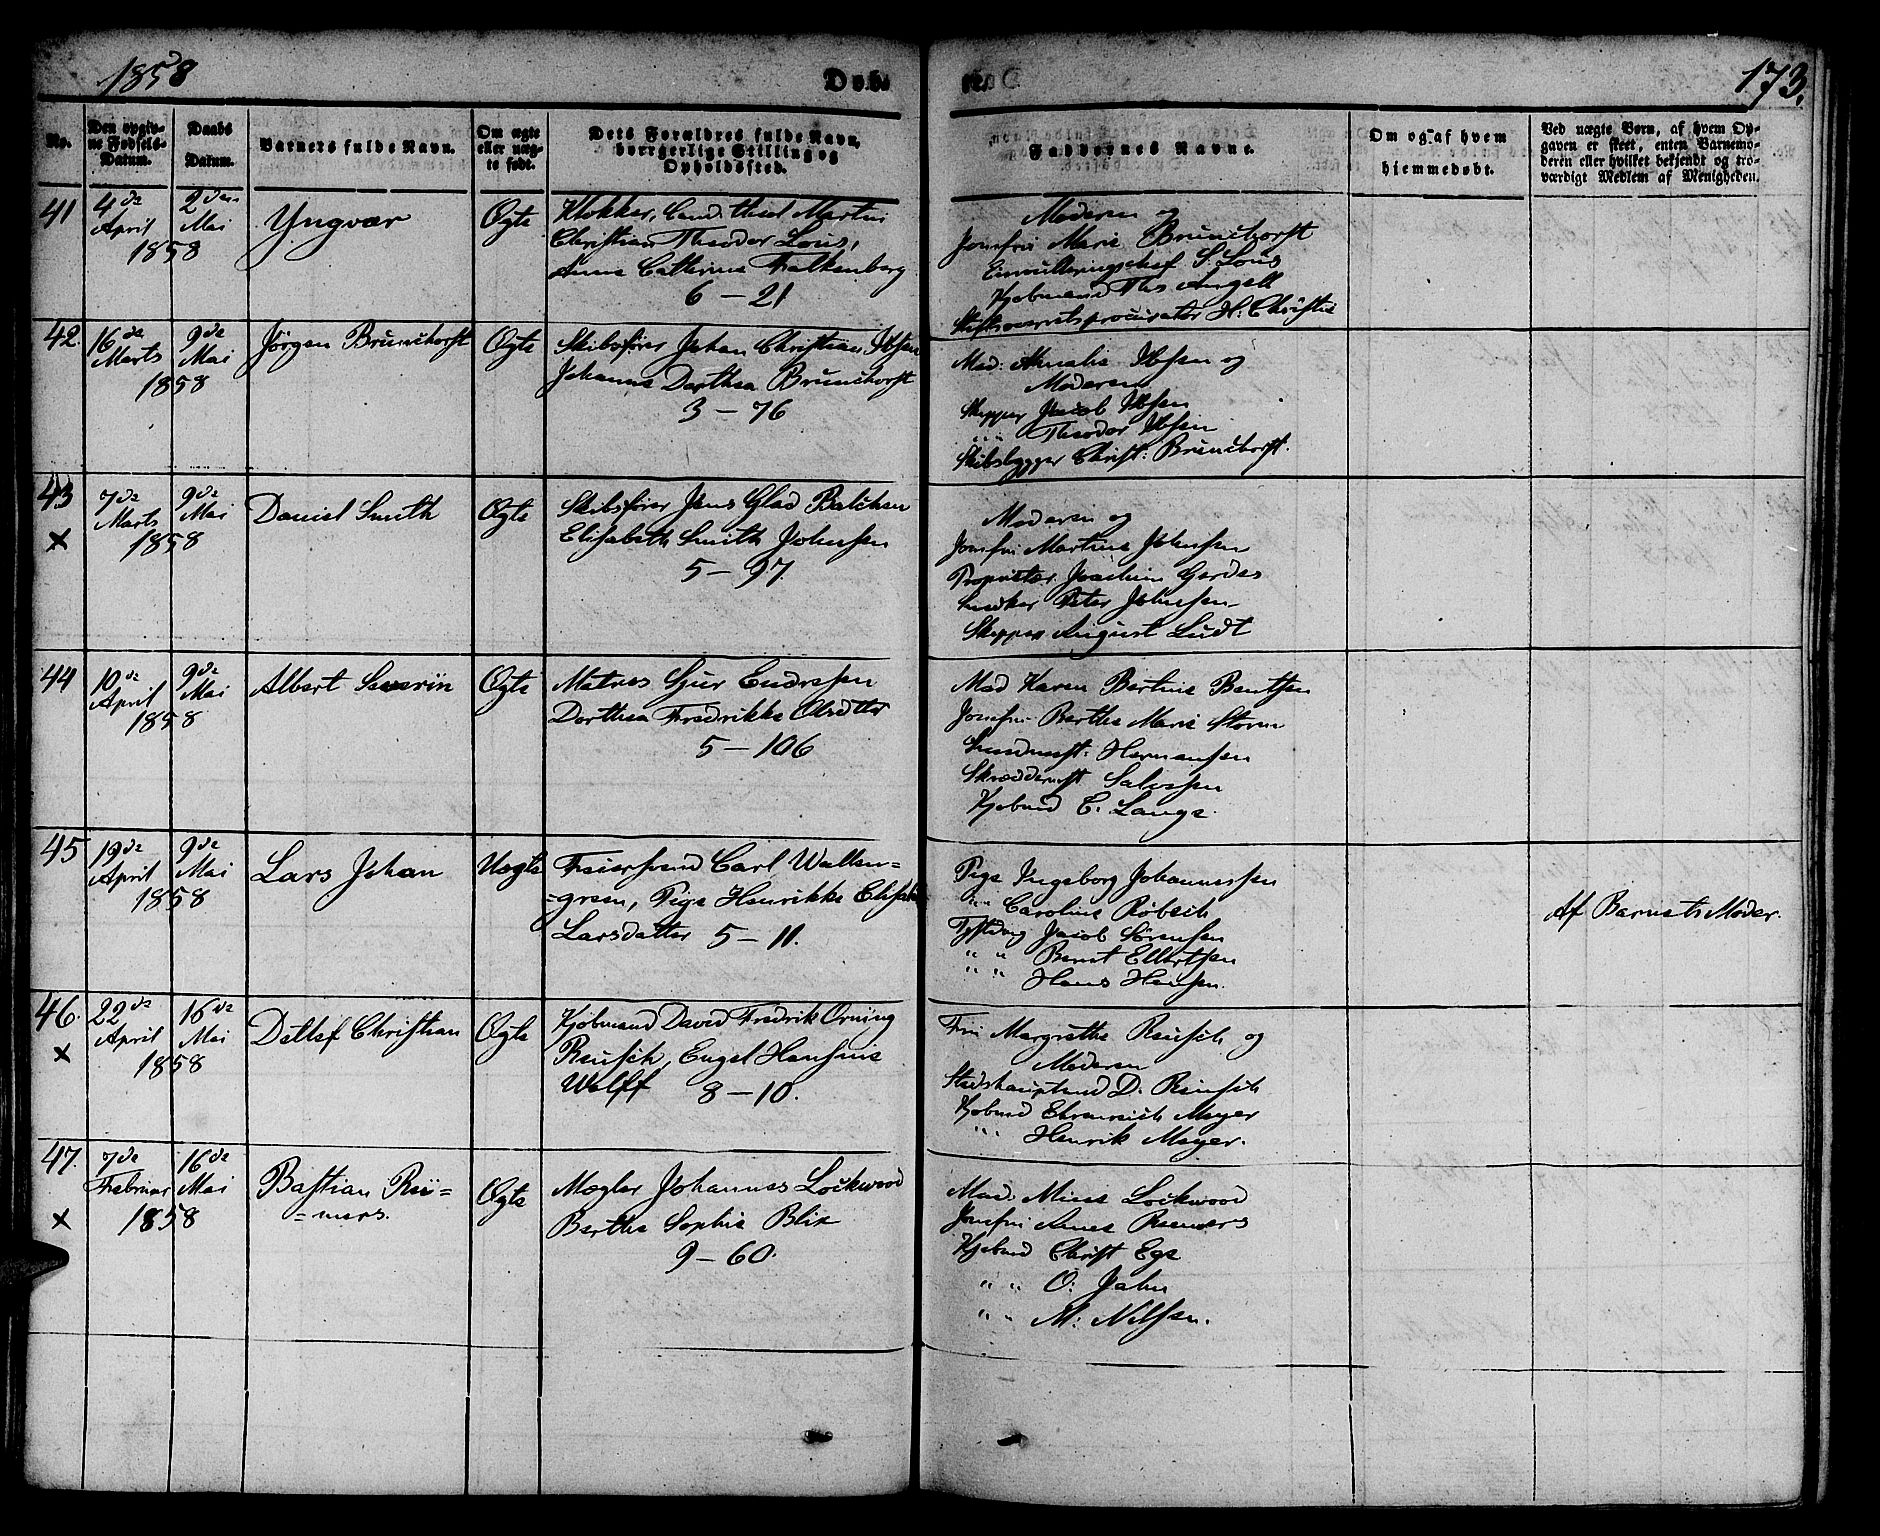 1858
Døbte.
173.
No.
Den opgivne Fødsels-Datum.
Daabs Datum.
Barnets fulde Navn.
Om ægte eller uægte født.
Dets Forældres fulde Navn, borgerlige Stilling og Opholdssted.
Faddernes Navne.
Om og af hvem hjemmedøbt.
Ved uægte Børn, af hvem Op-
gaven er skeet, enten Barnemo-
deren eller hvilket bekjendt og tro-
værdigt Medlem af Menigheden.
41
4de April 1858
2den Mai
Yngvar
Ægte
Klokker, Cand. theol Martin
Christian Theodor Lous,
Anna Cathrine Falkenberg
6 – 21
Moderen og
Jomfru Marie Brunchorst
S. Lous
Kjøbmand Ths Angell
Stiftsoverretsprocurator H. Christie
42.
16de Marts 1858
9de Mai
Jørgen Brunchorst
Ægte
Skibsfører Johan Christian Ibsen
Johanne Dorthea Brunchorst
3 – 76
Mad: Amalie Ibsen og
Moderen
Skipper Jacob Ibsen
" " Theodor Ibsen
Skibsbygger Christ: Brunchorst.
43
×
7de Marts 1858
9de Mai
Daniel Smith
Ægte
Skibsfører Jens Glad Balchen
Elisabeth Smith Johnsen
5 – 97.
Moderen og
Jomfru Martine Johnsen
Proprietær Joachim Gerdes
Peter Johnsen
Skipper August Ludt
44
10de April 1858
9de Mai
Albert Severin
Ægte
Matros Sjur Endresen
Dorthea Fredrikke Olsdtter
5 – 106
Mad Karen Bertine Bentsen
Jomfru Berthe Marie Storm
Hermansen
Skræddermst Salvesen
Kjøbmd C. Lange.
45
19de April 1858
9de Mai
Lars Johan
Uægte
Feiersvend Carl Wallen=
=green, Pige Henrikke Elisabeth
Larsdatter 5 – 11.
Pige Ingeborg Johannessen
" " Caroline Røbech
Jacob Sørensen
" " Bernt Ellertsen
" " Hans Hansen.
Af Barnets Moder.
46.
×
22de April 1858
16de Mai
Detlef Christian
Ægte
Kjøbmand David Fredrik Orning
Reusch, Engel Hansine
Wolff 8 – 10.
Fru Margrethe Reusch og
Moderen
Stadshauptmd D. Reusch
Kjøbmd Ehrenreich Meyer
" " Henrik Meyer.
47.
×
7de Februar 1858
16de Mai
Bastian Rei=
=mers.
Ægte
Mægler Johannes Lockwood
Berthe Sophie Blix
9 – 60.
Mad: Mine Lockwood
Jomfru Anne Reimers
Kjøbmd Christ Ege
" " O: Jahn
" " M: Nilsen.